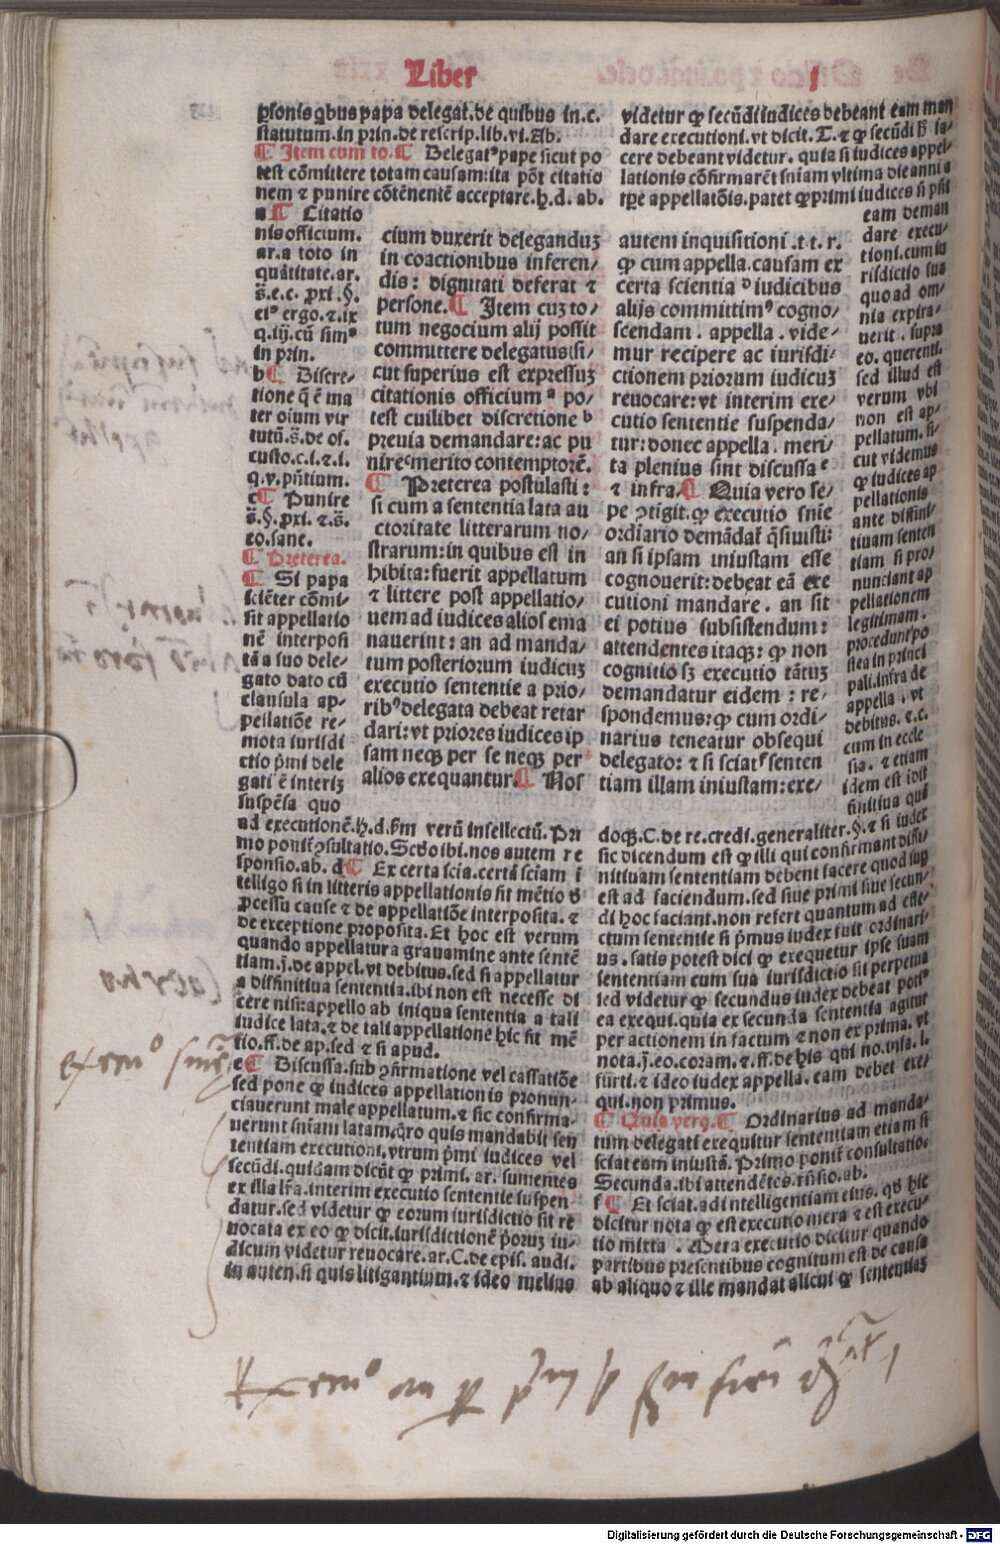 Liber I
ꝑsonis qͥbus papa delegat. de quibus in. c.
statutum. in prin. de rescrip. lib. vi. Ab.
¶ Item cum to. ¶ Delegatꝰ pape sicut po
test cōmittere totam causam: ita pōt citatio
nem ⁊ punire cōtēnentē acceptare. h. d. ab.
a ¶ Citatio
nis officium.
ar. a toto in
quātitate. ar.
s̄. e. c. ꝓxi. §.
eiꝰ ergo. ⁊. ix
q. iij. cū simꝰ
in prin.
b ¶ Discre-
tione q̄ ē ma
ter oīum vir
tutū. s̄. de of.
custo. c. i. ⁊. i.
q. v. pn̄tium.
c ¶ Punire
s̄. §. ꝓxi. ⁊. s̄.
eo. sane.
¶ Preterea.
¶ Si papa
sciēter cōmi-
sit appellatio
nē interposi
tā a suo dele-
gato dato cū
clausula ap-
pellatiōe re-
mota iurisdi
ctio pͥmi dele
gati ē interiꝫ
suspēsa quo
cium duxerit delegandūꝫ
in coactionibus inferen/
dis: dignitati deferat ⁊
persone. ¶ Item cuꝫ to/
tum negocium alij possit
committere delegatus (si/
cut superius est expressuꝫ
citationis officium ᵃ po/
test cuilibet discretione ᵇ
preuia demandare: ac pu
nire ᶜ merito contemptorē.
¶ Preterea postulasti:
si cum a sententia lata au
ctoritate litterarum no/
strarum: in quibus est in
hibita: fuerit appellatum
⁊ littere post appellatio/
nem ad iudices alios ema
nauerint: an ad manda/
tum posteriorum iudicuꝫ
executio sententie a prio/
ribꝰ delegata debeat retar
dari: vt priores iudices ip
sam neqꝫ per se neqꝫ per
alios exequantur. ¶ Nos
ad executionē. h. d. s̄m verū intellectū. Pri
mo ponit ꝯsultatio. Scd̄o ibi. nos autem re
sponsio. ab. d ¶ Ex certa scīa. certā sciam ī
telligo si in litteris appellationis fit mētio d̄
ꝓcessu cause ⁊ de appellatiōe interposita. ⁊
de exceptione proposita. Et hoc est verum
quando appellatur a grauamine ante sentē
tiam. j̄. de appel. vt debitus. sed si appellatur
a diffinitiua sententia. ibi non est necesse di
cere nisi: appello ab iniqua sententia a tali
iudice lata. ⁊ de tali appellatione hic fit mē
tio. ff. de ap. sed ⁊ si apud.
e ¶ Discussa. sub ꝯfirmatione vel cassatiōe
sed pone ꝙ iudices appellationis pronun-
ciauerunt male appellatum. ⁊ sic confirma-
uerunt sniam latam. qͥro quis mandabit sen
tentiam executioni, vtrum pͥmi iudices vel
secūdi. quidam dicūt ꝙ primi. ar. sumentes
ex illa lr̄a. interim executio sententie suspen-
datur. sed videtur ꝙ eorum iurisdictio sit re
uocata ex eo ꝙ dicit. iurisdictionē pͥoruꝫ iu-
dicum videtur reuocare. ar. C. de epis. audi.
in auten. si quis litigantium. ⁊ ideo melius
videtur ꝙ secūdi iudices debeant eam man
dare executioni. vt dicit. T. ⁊ ꝙ secūdi h̄ fa-
cere debeant videtur. quia si iudices appel-
lationis cōfirmarēt sniam vltima die anni a
tꝑe appellatōis. patet ꝙ primi iudices n̄ pn̄t
eam deman
dare execu-
tioni. cum iu
risdictio sua
quo ad om-
nia expira-
uerit. supra
eo. querenti.
sed illud est
verum vbi
non est ap-
pellatum. si-
cut videmus
ꝙ iudices ap
pellationis
ante diffini-
tiuam senten
tiam si pro/
nunciant ap
pellationem
legitimam.
procedunt po
stea in princi
pali. infra de
appella. vt
debitus. ⁊. c.
cum in eccle
sia. ⁊ etiam
idem est idit
finitiua qui
autem inquisitioni. t. t. r.
ꝙ cum appella. causam ex
certa scientia ᵈ iudicibus
alijs committimꝰ cogno/
scendam. appella. vide-
mur recipere ac iurisdi-
ctionem priorum iudicuꝫ
reuocare: vt interim exe/
cutio sententie suspenda/
tur: donec appella. meri/
ta plenius sint discussa ᵉ
⁊ infra. ¶ Quia vero se/
pe ꝯtigit. ꝙ executio snīe
ordīario demādat͛ q̄siuisti:
an si ipsam iniustam esse
cognouerit: debeat eā exe
cutioni mandare. an sit
ei potius subsistendum:
attendentes itaqꝫ: ꝙ non
cognitio sꝫ executio tātuꝫ
demandatur eidem: re/
spondemus: ꝙ cum ordi/
narius teneatur obsequi
delegato: ⁊ si sciat ᶠ senten
tiam illam iniustam: exe/
doqꝫ. C. de re. credi. generaliter. §. ⁊ si iudex
sic dicendum est ꝙ illi qui confirmant diffi-
nitiuam sententiam debent facere quod sup
est ad faciendum. sed siue primi siue secun-
di hoc faciant. non refert quantum ad effe-
ctum sententie si pͥmus iudex fuit ordinari-
us. satis potest dici ꝙ exequetur ipse suam
sententiam cum sua iurisdictio sit perpetua
sed videtur ꝙ secundus iudex debeat potiꝰ
ea exequi. quia ex secunda sententia agitur
per actionem in factum ⁊ non ex prima. vt
nota. j̄. eo. coram. ⁊. ff. de his qui no. infa. l.
furti. ⁊ ideo iudex appella. eam debet exe-
qui. non primus.
¶ Quia vero. ¶ Ordinarius ad manda-
tum delegati exequitur sententiam etiam si
sciat eam iniustā. Primo ponit͛ consultatio.
Secunda. ibi attendētes. rn̄sio. ab.
f ¶ Et sciat. ad intelligentiam eius. qd̄ hic
dicitur nota ꝙ est executio mera ⁊ est execu-
tio mixta. Mera executio dicitur quando
partibus presentibus cognitum est de causa
ab aliquo ⁊ ille mandat alicui ꝙ sententiaꝫ